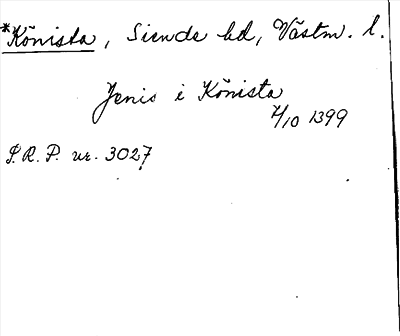 *Könista, Siende hd, Västm. l.
Jenis i Könista
4/10 1399
S.R.P. nr. 3027